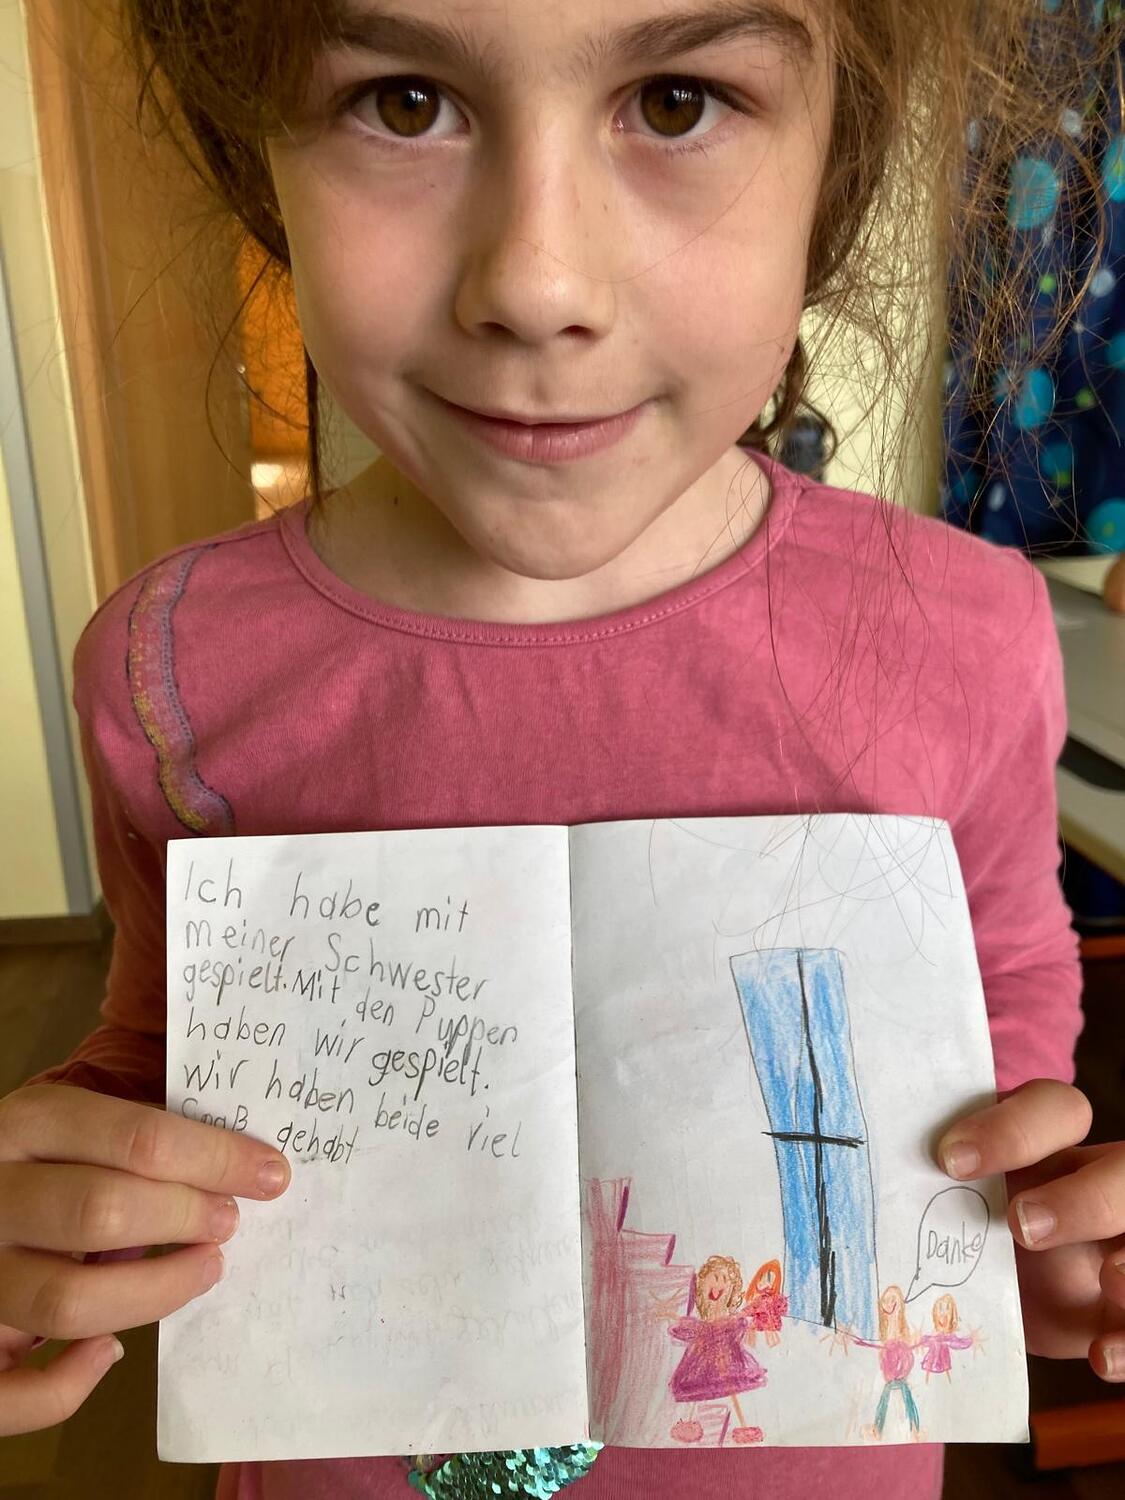 Ich habe mit
meiner Schwester
gespielt. Mit den Puppen
haben wir gespielt.
Wir haben beide viel
Spaß gehabt
Danke